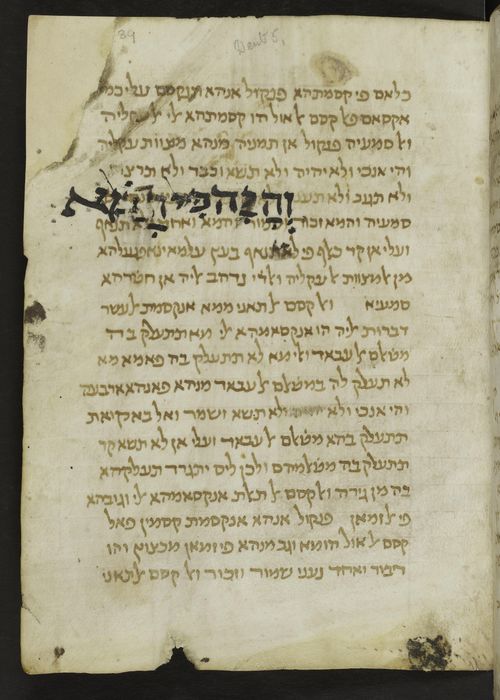 39
Deut 5,
כלאם פי קסמתהא פנקול אנהא תנקסם עלי כם
אקסאם פאלקסם אלאול הו קסמתהא אלי אלעקליה
ואלסמעיה פנקול אן תמניה מנהא מצוות עקליה
והי אנכי ולא יהיה ולא תשא וכבד ולא תרצח
ולא תענה ולא
והיה הוא
סמעיה והמא זכור
ועלי אן קד כלף פי לא תנאף בעץ עלמאינא
מן אלמצוות אלעקליה ואלדי נדהב אליה אן
סמעיא ואלקסם אלתאני ממא אנקסמת אלעשר
דברות אליה הו אנקסאמהא אלי מא תתעלק בה
מטאלם אלעבאד ואלי מא לא תתעלק בה פאמא מא
לא תעלק לה במטאלם אלעבאד מנהא פאנהא ארבעה
והי אנכי ולא יהיה ולא תשא ושמר ואלבאקיאת
תתעלק בהא מטאלם אלעבאד ועלי אן לא תשא קד
תתעלק בה מטאלמהם ולכן ליס יתגרד תעלקהא
בה מן גירה ואלקסם אלתאלת אנקסאמהא אלי וגובהא
פי אלזמאן פנקול אנהא אנקסמת קסמין פאל
קסם אלאול הו מא וגב מנהא פי זמאן מכצוץ והו
דיבור ואחד נעני שמור וזכור ואלקסם אלתאני